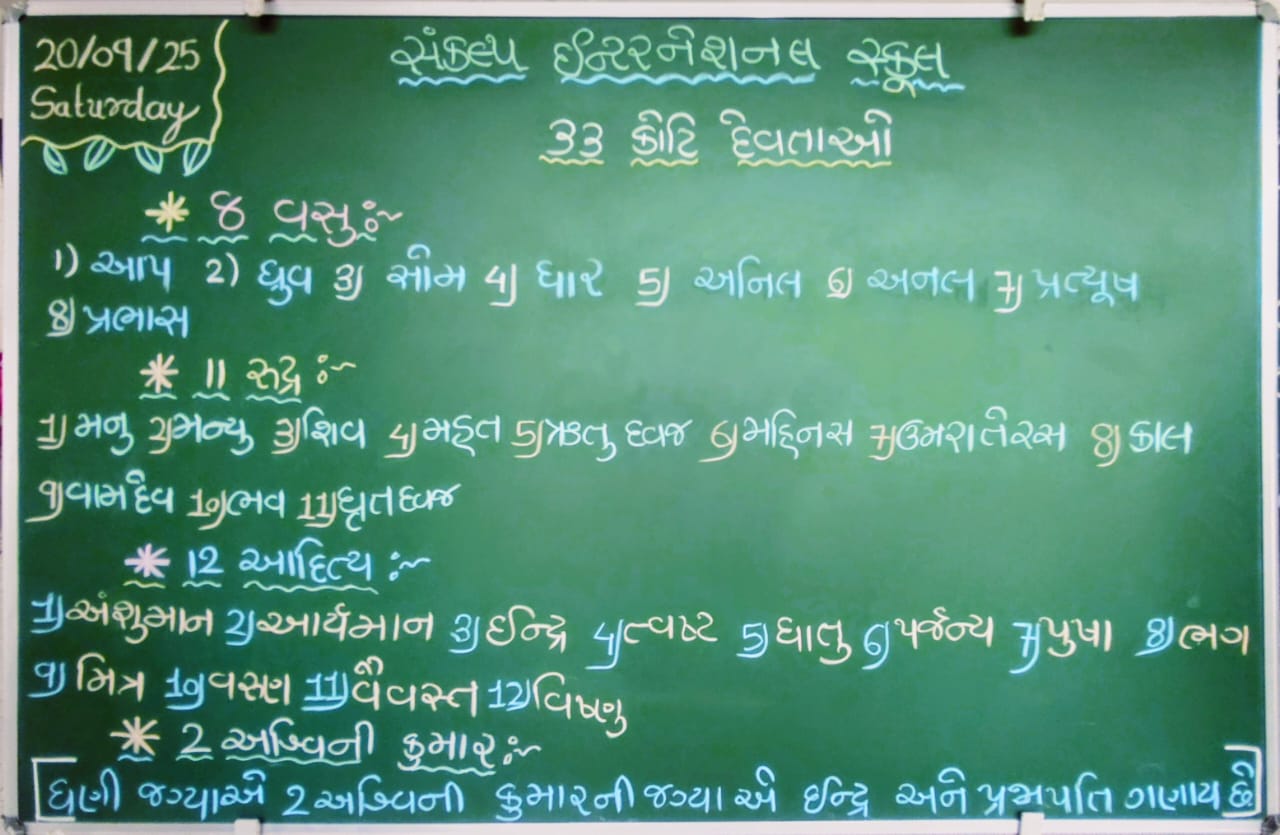 20/09/25
Saturday
સંકલ્પ ઈન્ટરનેશનલ સ્કૂલ
33 કોટિ દેવતાઓ
* 8 વસુ :~
1) આપ 2) ધ્રુવ 3) સોમ 4) ધાર 5) અનિલ 6) અનલ 7) પ્રત્યૂષ
8) પ્રભાસ
* 11 રુદ્ર :~
1) મનુ 2) મન્યુ 3) શિવ 4) મહત 5) ઋતુ ધ્વજ 6) મહિનસ 7) ઉમરાતેરસ 8) કાલ
9) વામદેવ 10) ભવ 11) ધૃતધ્વજ
* 12 આદિત્ય :~
1) અંશુમાન 2) આર્યમાન 3) ઈન્દ્ર 4) ત્વષ્ટ 5) ધાતુ 6) પર્જન્ય 7) પુષા 8) ભગ
9) મિત્ર 10) વરુણ 11) વૈવસ્ત 12) વિષ્ણુ
* 2 અશ્વિની કુમાર :~
[ઘણી જગ્યાએ 2 અશ્વિની કુમારની જગ્યા એ ઈન્દ્ર અને પ્રજાપતિ ગણાય છે]